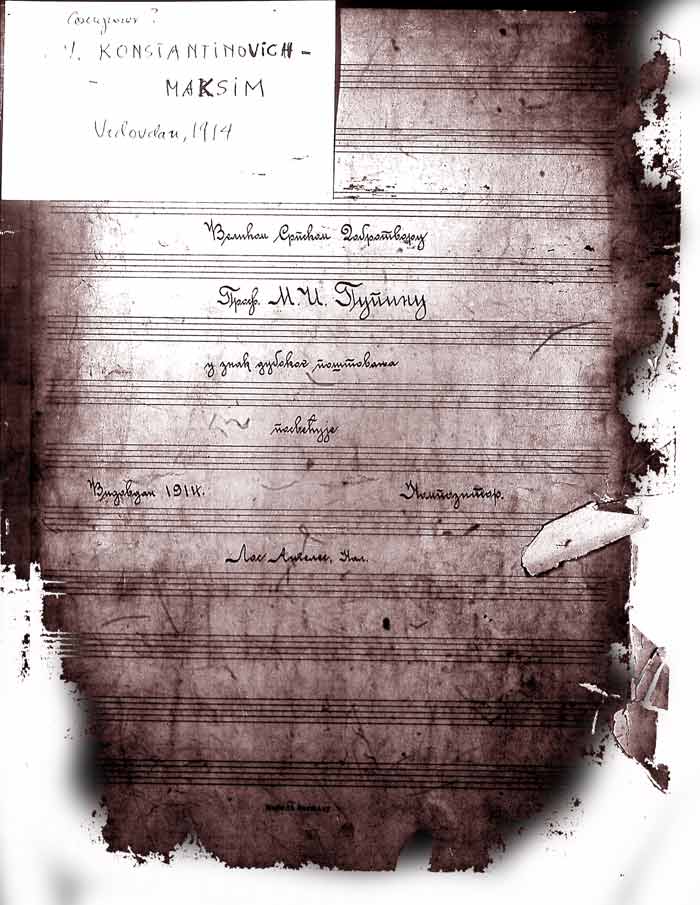 Composer ?
KONSTANTINOVICH -
MAKSIM
Vidovdan, 1914
Великом Српском Добротвору
Проф. М. И. Пупину
у знак дубоког поштовања
посвећује
Видовдан 1914.
Композитор.
Лос Анђелес, Кал.